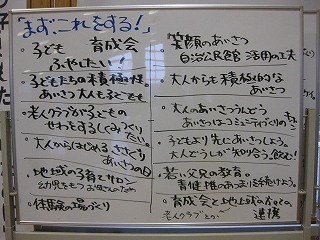 「まず、これをする!」
・子ども 育成会
ふやしたい!!
・子どもたちの積極性を。
あいさつ 大人も子どもも
・老人クラブが子どもの
せわをするしくみづくり
・大人からはじめる
あいさつの日
・地域の子育てサロン
幼児をもつお母さんのため
・体験の場づくり
・笑顔のあいさつ
・自治公民館 活用の工夫
・大人から積極的な
あいさつ
・大人のあいさつうんどう
あいさつはコミュニティづくりの
・子どもより先にあいさつしよう。
大人どうしが知り合う、飲む!
・若い父兄の教育。
・育成会と地域の方との
老人クラブとの 連携